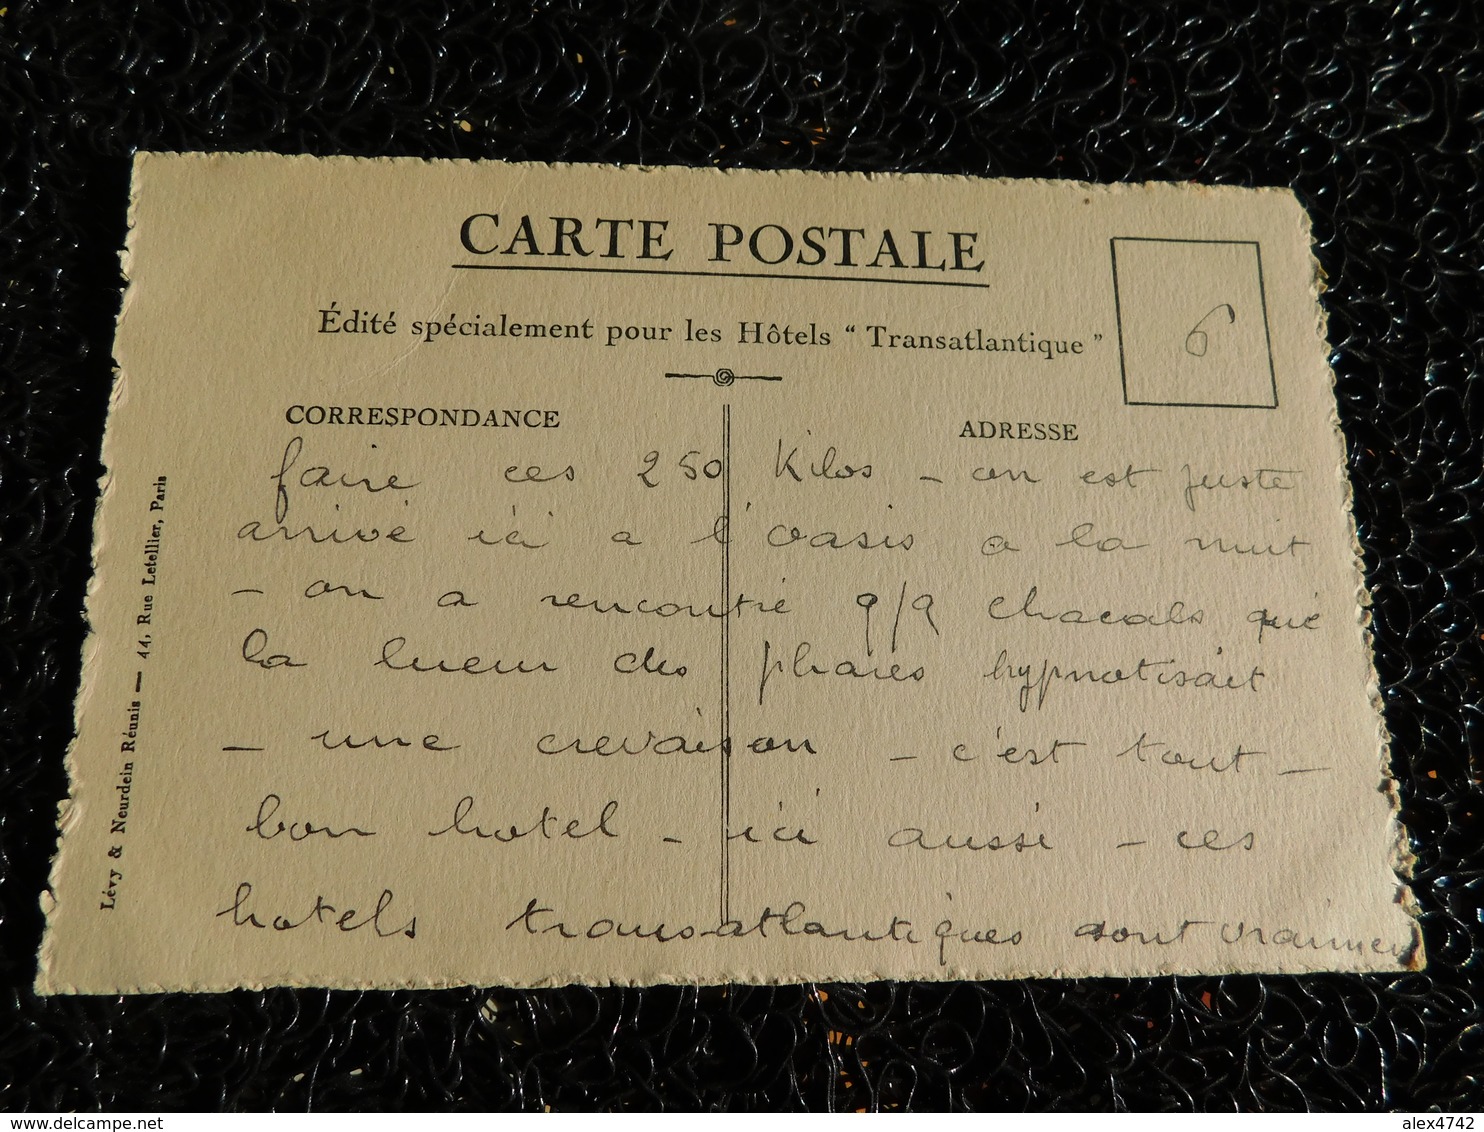 CARTE POSTALE
Édité spécialement pour les Hôtels “ Transatlantique ”
6
CORRESPONDANCE
ADRESSE
faire ces 250 Kilos – on est juste
arrivé ici a l'oasis a la nuit
– on a rencontré q/q chacals que
la lueur des phares hypnotisait
– une crevaison – c'est tout –
bon hotel – ici aussi – ces
hotels transatlantiques sont vraimen
Lévy & Neurdein Réunis — 44, Rue Letellier, Paris
delcampe.net
alex4742